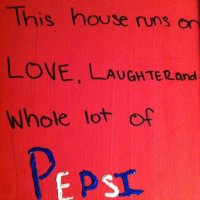 This house runs on
LOVE, LAUGHTER and
Whole lot of
PEPSI